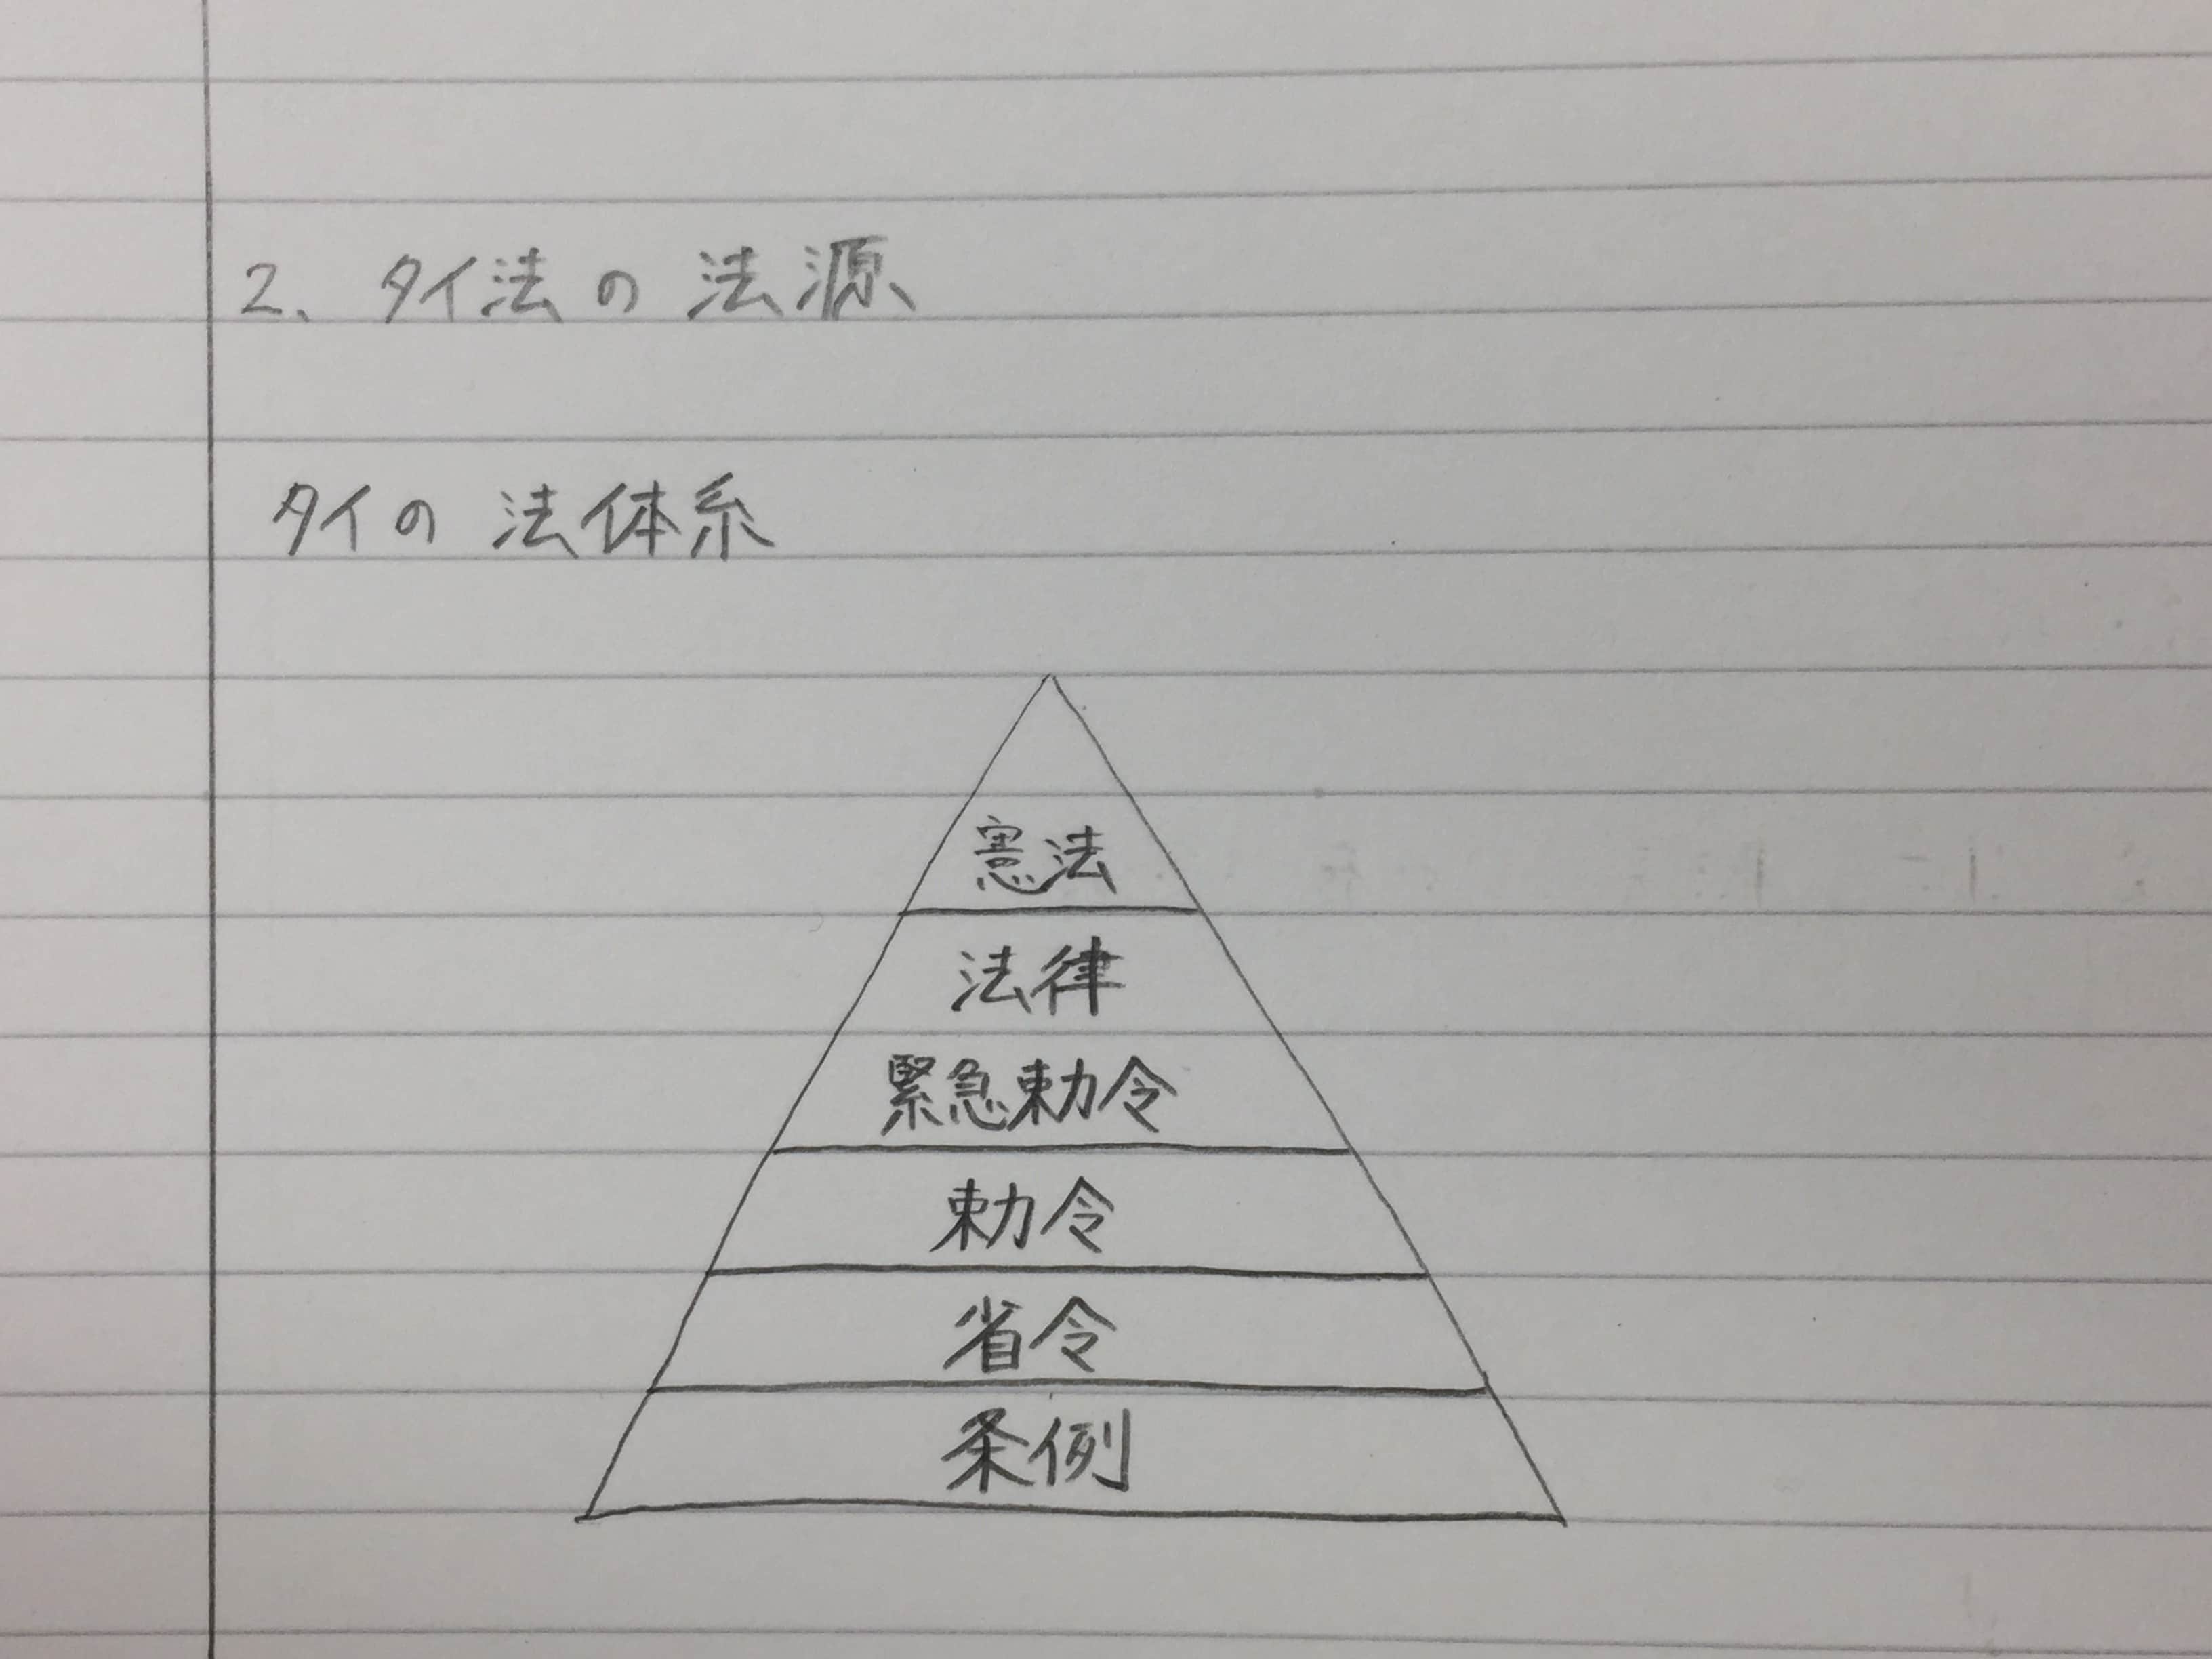 2、タイ法の法源
タイの法体系
憲法
法律
緊急勅令
勅令
省令
条例